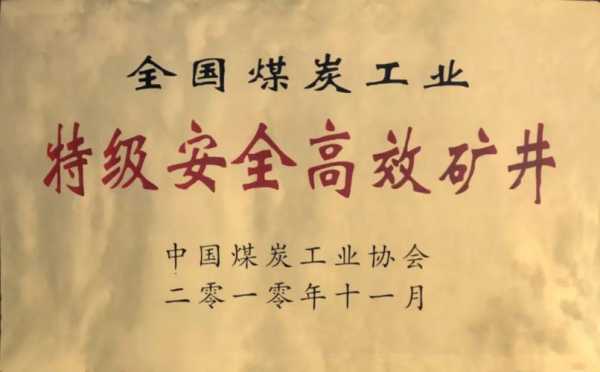 全国煤炭工业
特级安全高效矿井
中国煤炭工业协会
二零一零年十一月